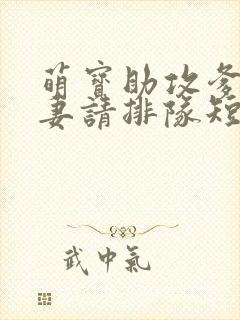 萌寶助攻爹
妻請排隊短
武中氣